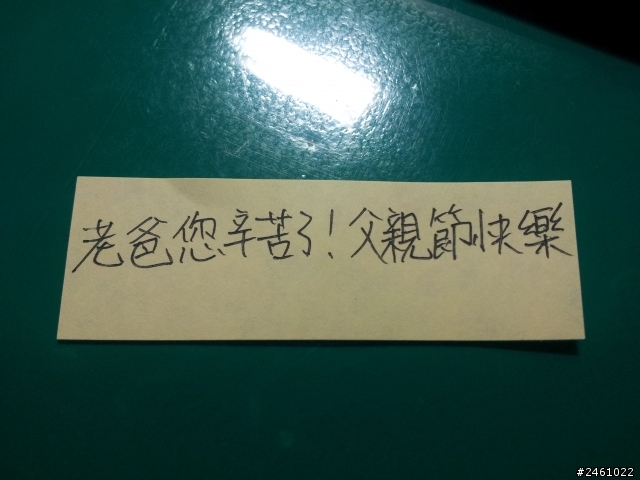 老爸您辛苦了!父親節快樂
#2461022